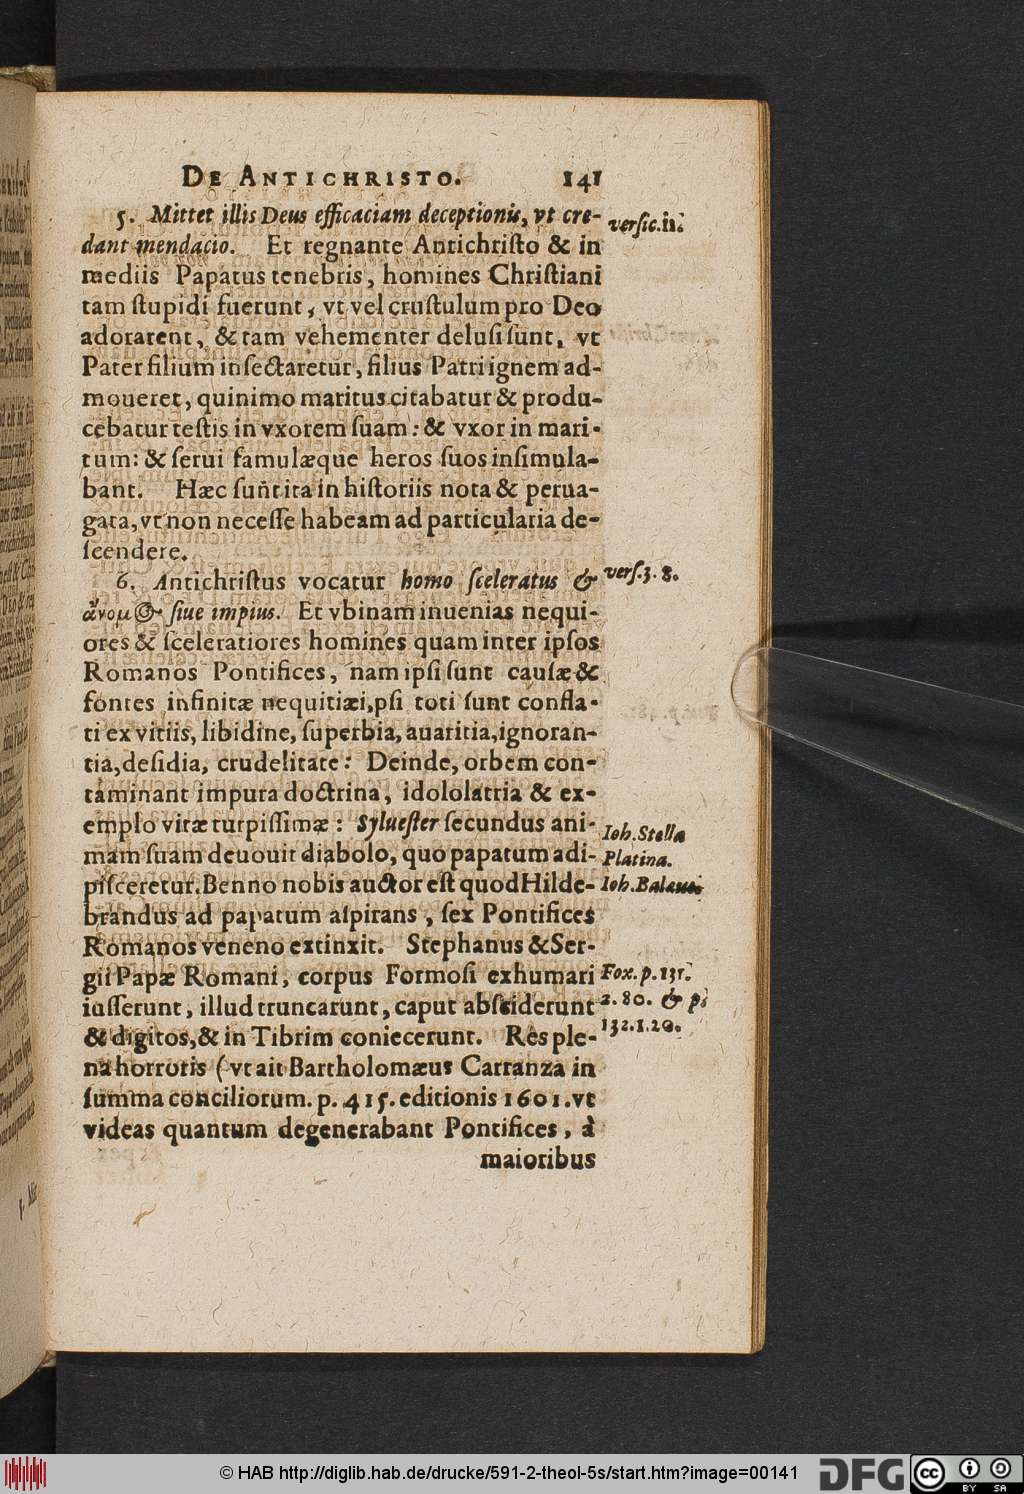 DE ANTICHRISTO. 141
5. Mittet illis Deus efficaciam deceptionis, vt cre-
versic.11.
dant mendacio. Et regnante Antichristo & in
mediis Papatus tenebris, homines Christiani
tam stupidi fuerunt, vt vel crustulum pro Deo
adorarent, & tam vehementer delusi sunt, vt
Pater filium insectaretur, filius Patri ignem ad-
moueret, quinimo maritus citabatur & produ-
cebatur testis in vxorem suam: & vxor in mari-
tum: & serui famulæque heros suos insimula-
bant. Hæc sunt ita in historiis nota & perua-
gata, vt non necesse habeam ad particularia de-
scendere.
6. Antichristus vocatur homo sceleratus &
vers.3.8.
ἄνομος siue impius. Et vbinam inuenias nequi-
ores & sceleratiores homines quam inter ipsos
Romanos Pontifices, nam ipsi sunt causæ &
fontes infinitæ nequitiæi,psi toti sunt confla-
ti ex vitiis, libidine, superbia, auaritia, ignoran-
tia, desidia, crudelitate: Deinde, orbem con-
taminant impura doctrina, idololatria & ex-
emplo vitæ turpissimæ: Syluester secundus ani-
Ioh. Stella
mam suam deuouit diabolo, quo papatum adi-
Platina.
pisceretur. Benno nobis auctor est quod Hilde-
Ioh. Balaeus
brandus ad papatum aspirans, sex Pontifices
Romanos veneno extinxit. Stephanus & Ser-
gii Papæ Romani, corpus Formosi exhumari
Fox. p. 131.
iusserunt, illud truncarunt, caput absciderunt
2. 80. & p.
& digitos, & in Tibrim coniecerunt. Res ple-
132.1.20.
na horroris (vt ait Bartholomæus Carranza in
summa conciliorum. p. 415. editionis 1601. vt
videas quantum degenerabant Pontifices, à
maioribus
© HAB http://diglib.hab.de/drucke/591-2-theol-5s/start.htm?image=00141
DFG
cc BY SA